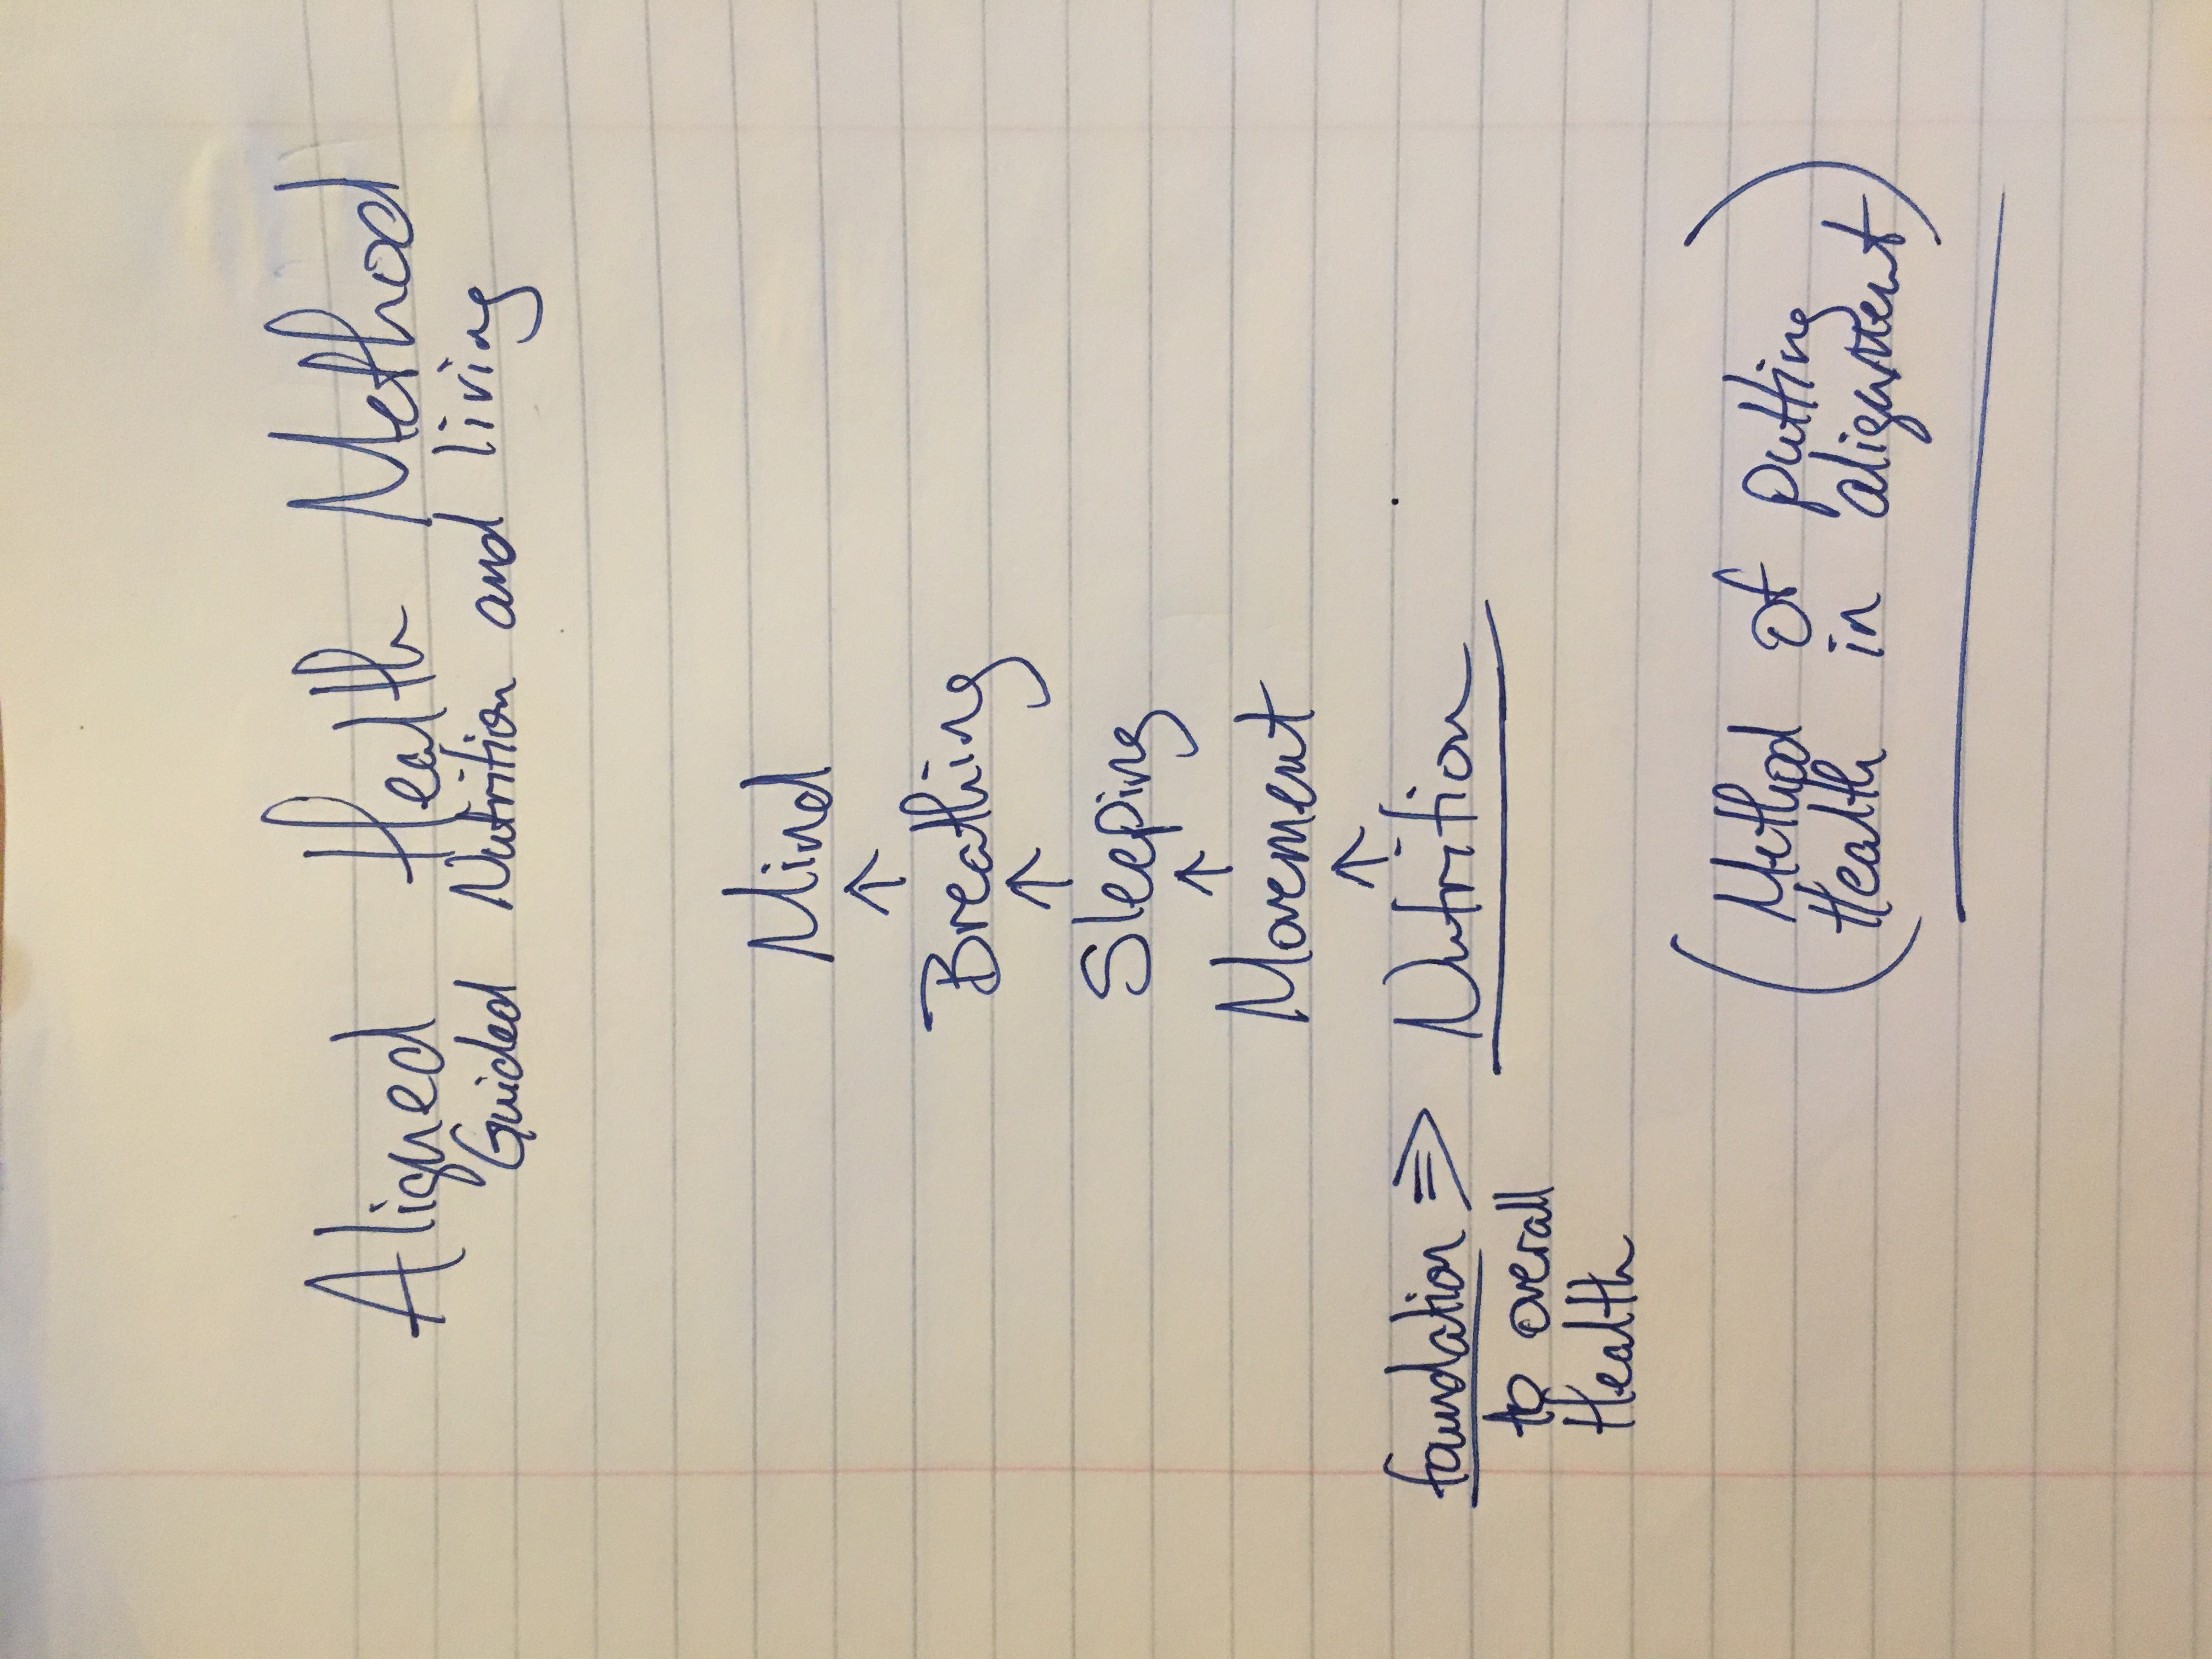 Aligned Health Method
Guided Nutrition and living
Mind
↑
Breathing
↑
Sleeping
↑
Movement
↑
foundation ⇒ Nutrition
to overall
Health
(Method of Putting
Health in alignment)